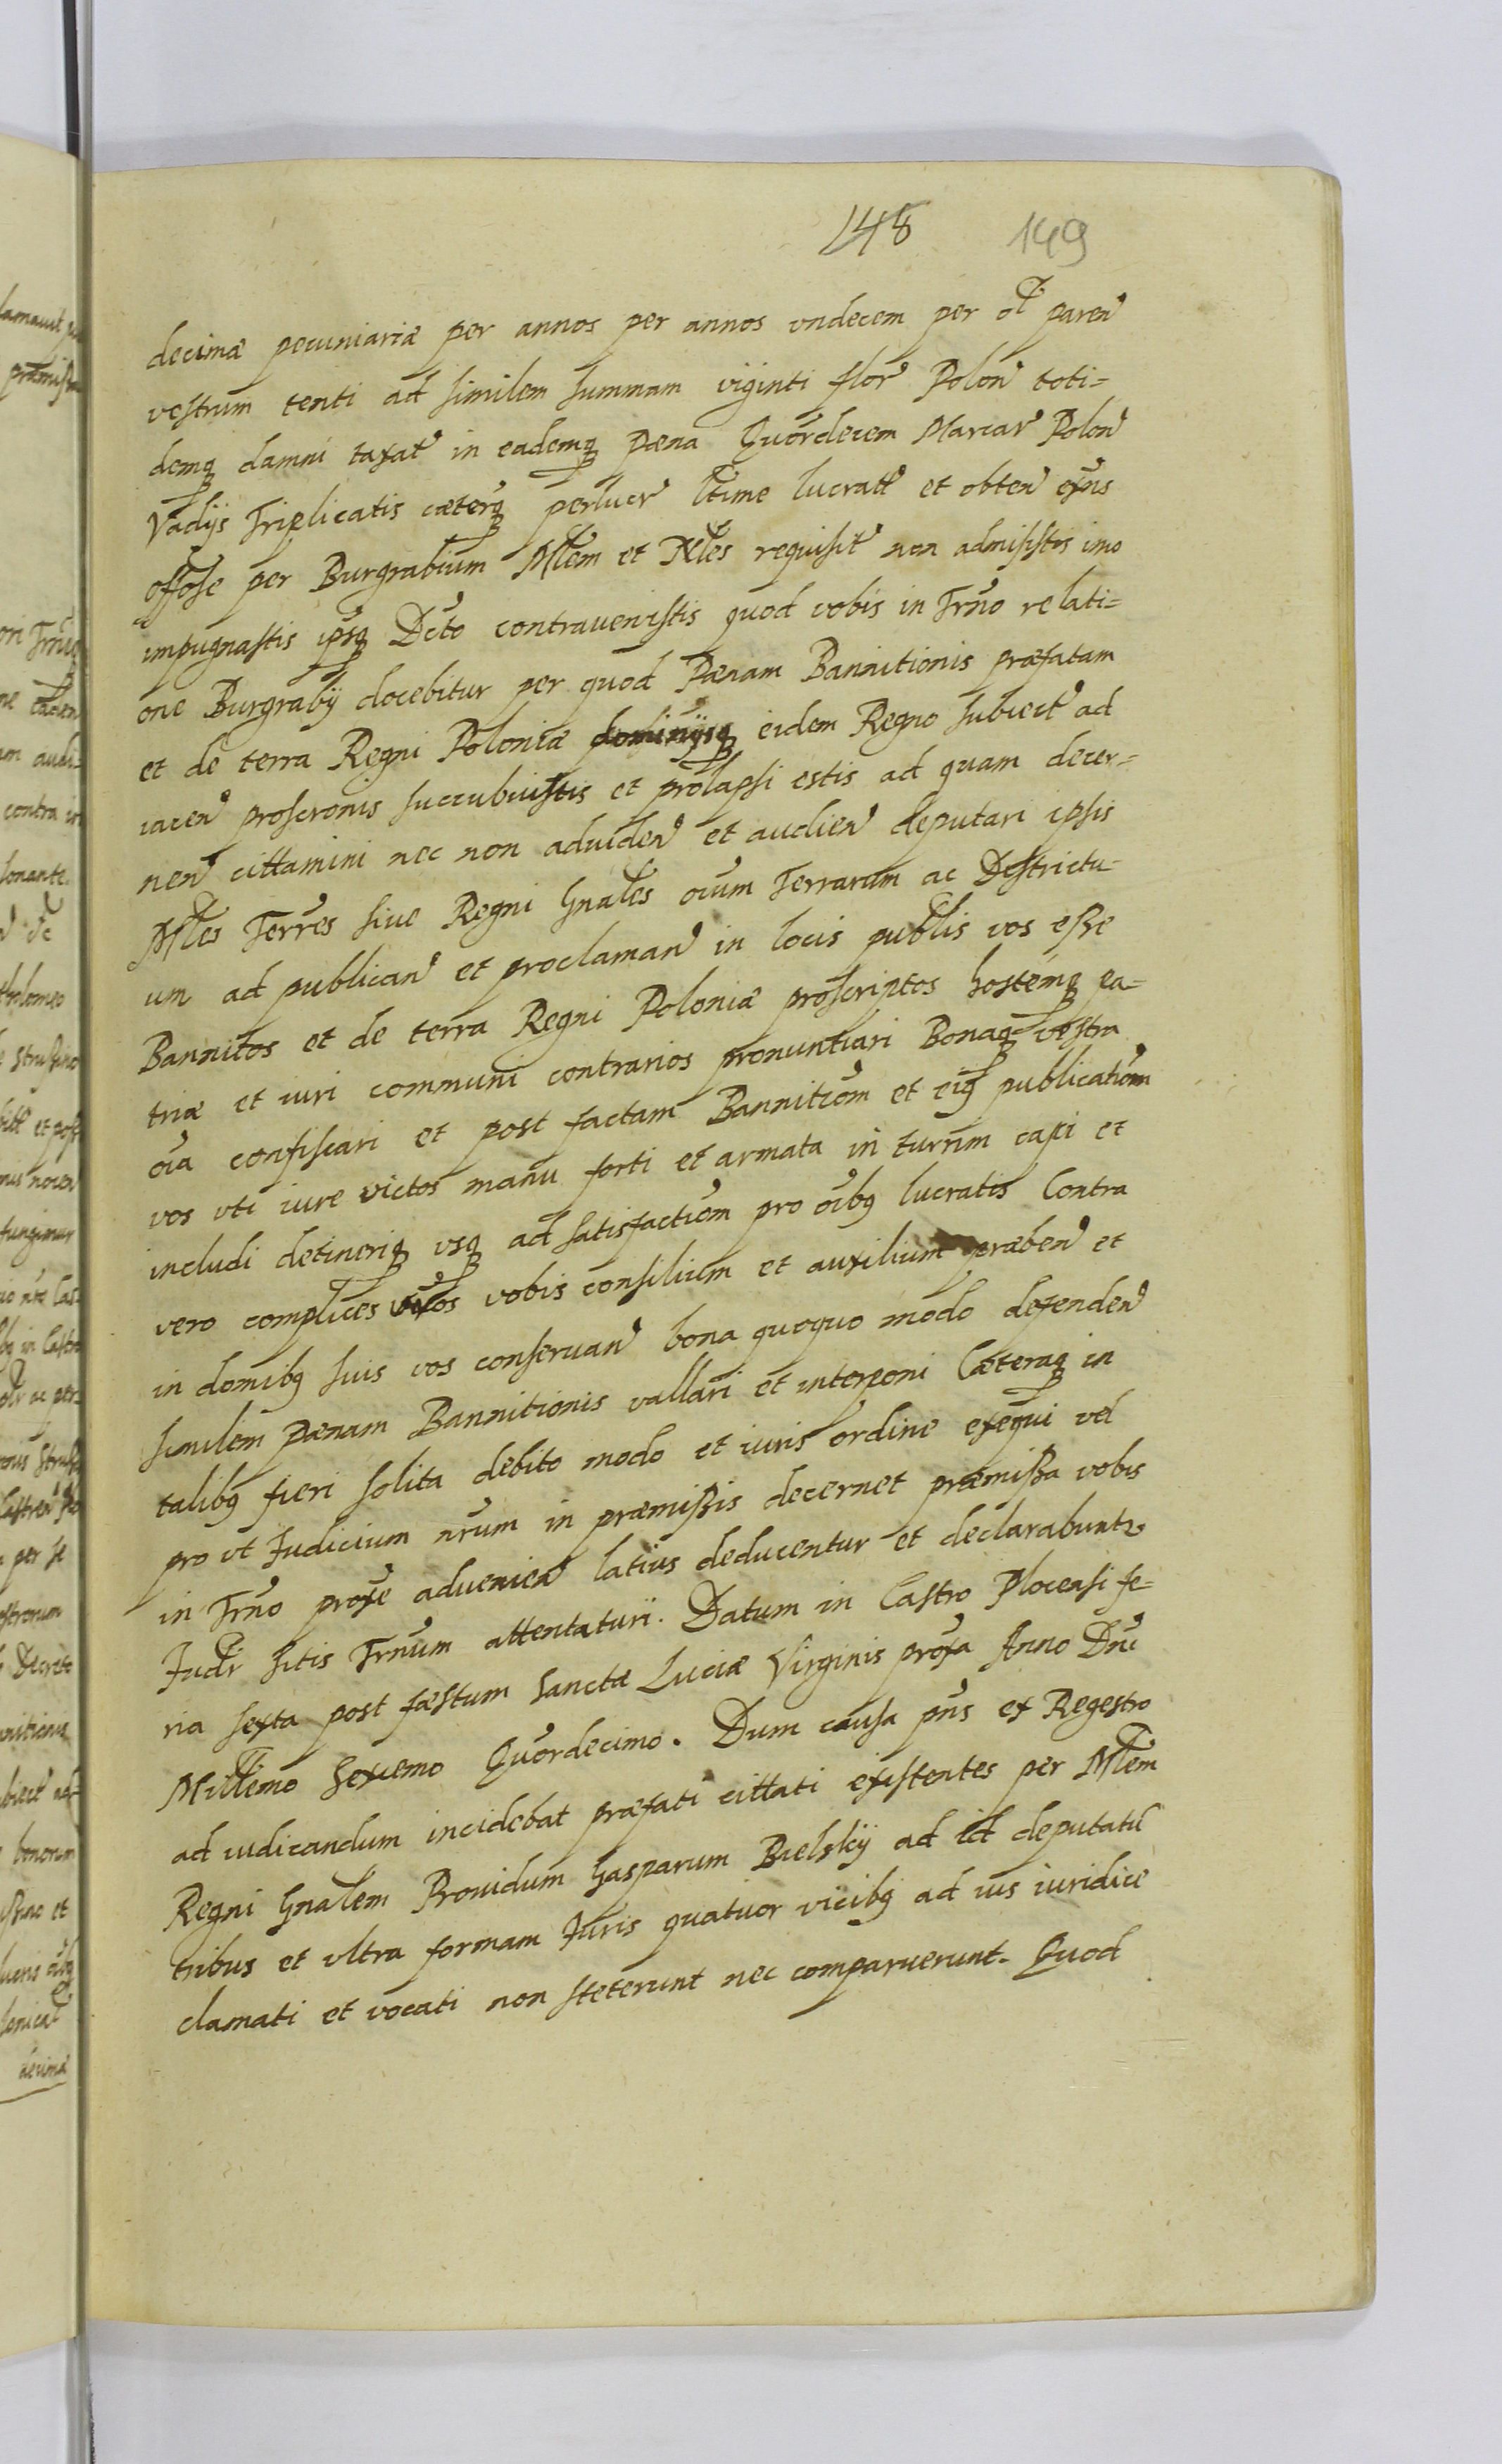 148 149
decimæ pecuniariæ per annos per annos vndecem per ol paren
vestrum tenti ad similem summam viginti flor Polon toti=
demq damni taxat in eademq Pæna Quordecem Marcar Polon
Vadijs Triplicatis cæterq perlucr ltime lucratt et obten exnis
offose per Burgrabium Mlem et Nles requisit non admisistis imo
impugnastis ipsq Dcto contrauenistis quod vobis in Trno relati=
one Burgrabij docebitur per quod Pænam Bannitionis præfatam
et de terra Regni Poloniæ dominijsq eidem Regno subiect ad
iacen proscronis succubuistis et prolapsi estis ad quam decer=
nen cittamini nec non aduiden et audien deputari ipsis
Mles Terres siue Regni Gnales oium Terrarum ac Districtu=
um ad publican et proclaman in locis publis vos esse
Bannitos et de terra Regni Poloniæ proscriptos hostemq pa=
triæ et iuri communi contrarios pronuntiari Bonaq vestra
oia confiscari et post factam Bannitiom et eig publicatiom
vos vti iure victos manu forti et armata in turrim capi et
includi detineriq vsq ad satisfactiom pro oibg lucratis Contra
vero complices vros vobis consilium et auxilium præben et
in domibg suis vos conseruan bona quoquo modo defenden
similem pænam Bannitionis vallari et interponi Cæteraq in
talibg fieri solita debito modo et iuris ordine exequi vel
pro vt Iudicium nrum in præmissis decernet præmissa vobis
in Trno proxe aduenien latius deducentur et declarabuntr
Iudr sitis Trnum attentaturi. Datum in Castro Plocensi fe=
ria sexta post fæstum Sanctæ Luciæ Virginis proxa Anno Dni
Millemo Sexcemo Quordecimo. Dum causa pns ex Regestro
ad iudicandum incidebat præfati cittati existentes per Mlem
Regni Gnalem Prouidum Gasparum Bielskij ad id deputatu
tribus et vltra formam Iuris quatuor vicibg ad ius iuridice
clamati et vocati non steterunt nec comparuerunt. Quod